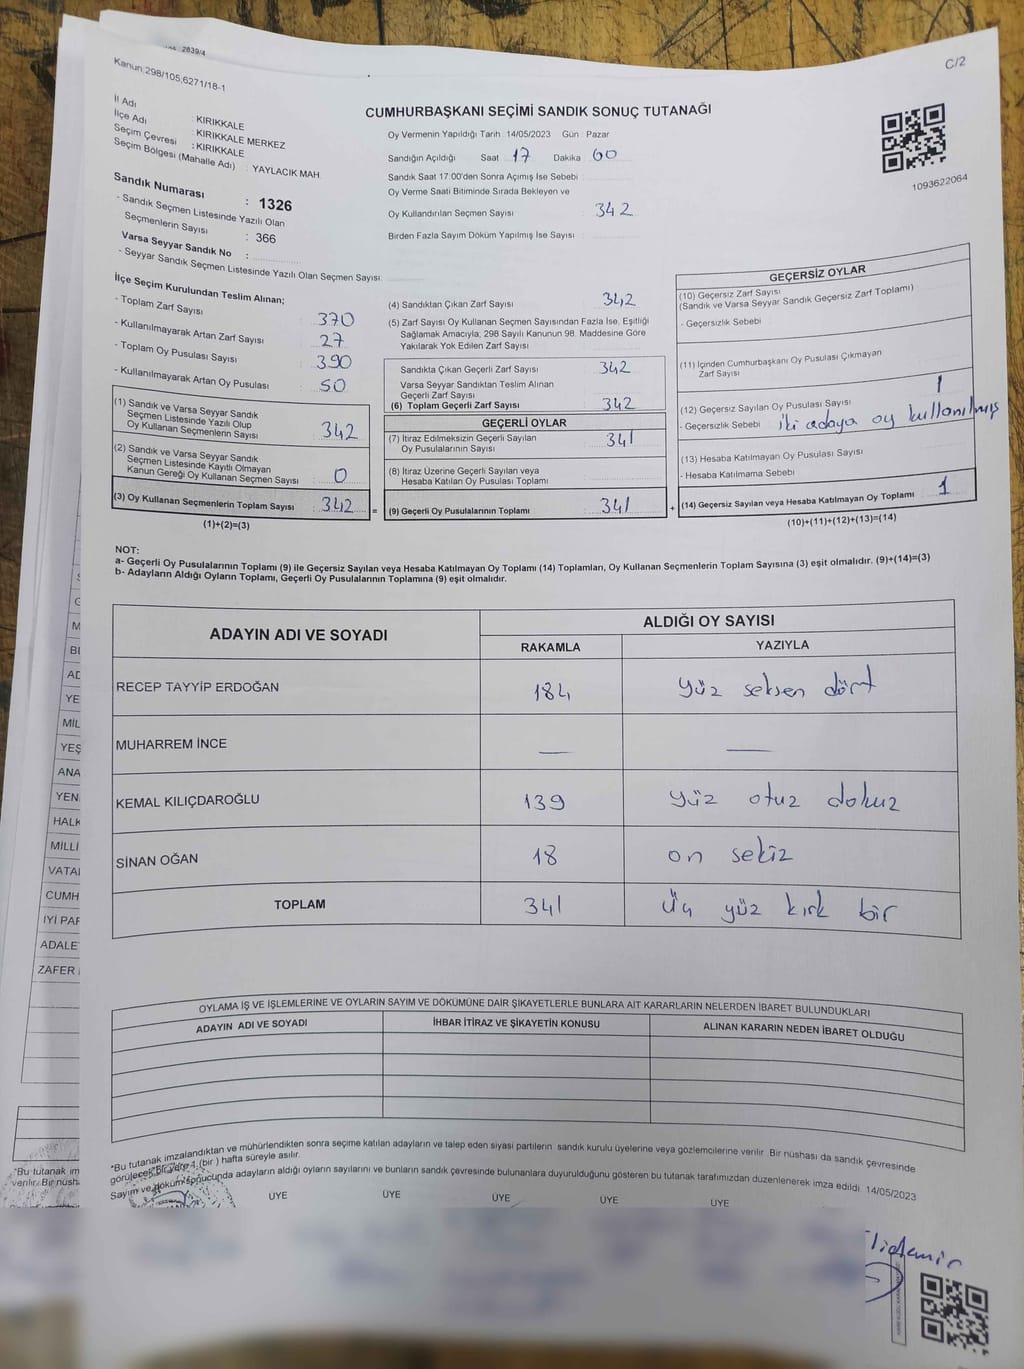 2839/4
Kanun:298/105,6271/18-1
C/2
CUMHURBAŞKANI SEÇİMİ SANDIK SONUÇ TUTANAĞI
İl Adı : KIRIKKALE
İlçe Adı : KIRIKKALE MERKEZ
Seçim Çevresi : KIRIKKALE
Seçim Bölgesi (Mahalle Adı) : YAYLACIK MAH.
Sandık Numarası : 1326
- Sandık Seçmen Listesinde Yazılı Olan
Seçmenlerin Sayısı : 366
Varsa Seyyar Sandık No :
- Seyyar Sandık Seçmen Listesinde Yazılı Olan Seçmen Sayısı:
Oy Vermenin Yapıldığı Tarih :14/05/2023 Gün : Pazar
Sandığın Açıldığı Saat 17 Dakika 60
Sandık Saat 17:00'den Sonra Açımış İse Sebebi :
Oy Verme Saati Bitiminde Sırada Bekleyen ve
Oy Kullandırılan Seçmen Sayısı : 342
Birden Fazla Sayım Döküm Yapılmış İse Sayısı :
1093622064
İlçe Seçim Kurulundan Teslim Alınan;
- Toplam Zarf Sayısı : 370
- Kullanılmayarak Artan Zarf Sayısı : 27
- Toplam Oy Pusulası Sayısı : 390
- Kullanılmayarak Artan Oy Pusulası : 50
(1) Sandık ve Varsa Seyyar Sandık
Seçmen Listesinde Yazılı Olup
Oy Kullanan Seçmenlerin Sayısı : 342
(2) Sandık ve Varsa Seyyar Sandık
Seçmen Listesinde Kayıtlı Olmayan
Kanun Gereği Oy Kullanan Seçmen Sayısı : 0
(3) Oy Kullanan Seçmenlerin Toplam Sayısı : 342
(1)+(2)=(3)
(4) Sandıktan Çıkan Zarf Sayısı : 342
(5) Zarf Sayısı Oy Kullanan Seçmen Sayısından Fazla İse, Eşitliği
Sağlamak Amacıyla, 298 Sayılı Kanunun 98. Maddesine Göre
Yakılarak Yok Edilen Zarf Sayısı :
Sandıkta Çıkan Geçerli Zarf Sayısı : 342
Varsa Seyyar Sandıktan Teslim Alınan
Geçerli Zarf Sayısı :
(6) Toplam Geçerli Zarf Sayısı : 342
GEÇERLİ OYLAR
(7) İtiraz Edilmeksizin Geçerli Sayılan
Oy Pusulalarının Sayısı : 341
(8) İtiraz Üzerine Geçerli Sayılan veya
Hesaba Katılan Oy Pusulası Toplamı :
= (9) Geçerli Oy Pusulalarının Toplamı : 341
GEÇERSİZ OYLAR
(10) Geçersiz Zarf Sayısı
(Sandık ve Varsa Seyyar Sandık Geçersiz Zarf Toplamı)
- Geçersizlik Sebebi
(11) İçinden Cumhurbaşkanı Oy Pusulası Çıkmayan
Zarf Sayısı
(12) Geçersiz Sayılan Oy Pusulası Sayısı : 1
- Geçersizlik Sebebi : iki adaya oy kullanılmış
(13) Hesaba Katılmayan Oy Pusulası Sayısı
- Hesaba Katılmama Sebebi
+ (14) Geçersiz Sayılan veya Hesaba Katılmayan Oy Toplamı : 1
(10)+(11)+(12)+(13)=(14)
NOT:
a- Geçerli Oy Pusulalarının Toplamı (9) ile Geçersiz Sayılan veya Hesaba Katılmayan Oy Toplamı (14) Toplamları, Oy Kullanan Seçmenlerin Toplam Sayısına (3) eşit olmalıdır. (9)+(14)=(3)
b- Adayların Aldığı Oyların Toplamı, Geçerli Oy Pusulalarının Toplamına (9) eşit olmalıdır.
ADAYIN ADI VE SOYADI ALDIĞI OY SAYISI
RAKAMLA YAZIYLA
RECEP TAYYİP ERDOĞAN 184 yüz seksen dört
MUHARREM İNCE — —
KEMAL KILIÇDAROĞLU 139 yüz otuz dokuz
SİNAN OĞAN 18 on sekiz
TOPLAM 341 Üç yüz kırk bir
OYLAMA İŞ VE İŞLEMLERİNE VE OYLARIN SAYIM VE DÖKÜMÜNE DAİR ŞİKAYETLERLE BUNLARA AİT KARARLARIN NELERDEN İBARET BULUNDUKLARI
ADAYIN ADI VE SOYADI İHBAR İTİRAZ VE ŞİKAYETİN KONUSU ALINAN KARARIN NEDEN İBARET OLDUĞU
*Bu tutanak imzalandıktan ve mühürlendikten sonra seçime katılan adayların ve talep eden siyasi partilerin sandık kurulu üyelerine veya gözlemcilerine verilir. Bir nüshası da sandık çevresinde
görülecek bir yere 1 (bir) hafta süreyle asılır.
Sayım ve döküm sonucunda adayların aldığı oyların sayılarını ve bunların sandık çevresinde bulunanlara duyurulduğunu gösteren bu tutanak tarafımızdan düzenlenerek imza edildi. 14/05/2023
ÜYE ÜYE ÜYE ÜYE ÜYE
G
M
AD
YE
MİL
YEŞ
ANA
YEN
HALK
MİLLİ
VATAN
CUMH
İYİ PAR
ADALE
ZAFER
*Bu tutanak im
verilir. Bir nüsh